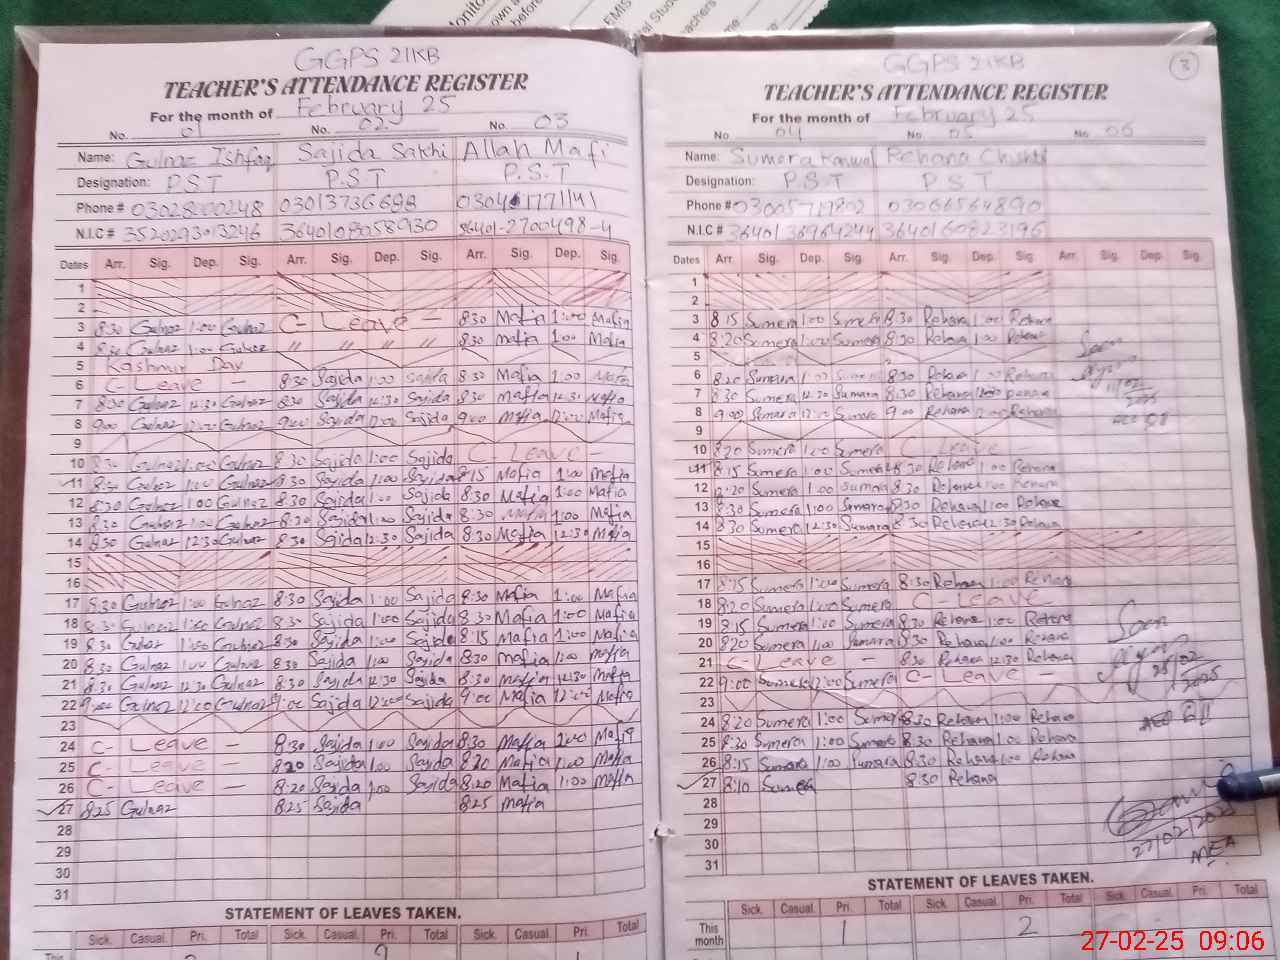 GGPS 21KB
TEACHER'S ATTENDANCE REGISTER
For the month of February 25
No. 01 No. 02 No. 03
Name: Gulnaz Ishfaq Sajida Sakhi Allah Mafi
Designation: P.S.T P.S.T P.S.T
Phone # 03028000248
N.I.C # 3520293013246 3640108058930 36401-2700498-4
Dates Arr. Sig. Dep. Sig. Arr. Sig. Dep. Sig. Arr. Sig. Dep. Sig.
1
2
3 8:30 Gulnaz 1:00 Gulnaz C- Leave - 8:30 Mafia 1:00 Mafia
4 8:30 Gulnaz 1:00 Gulnaz " " " " 8:30 Mafia 1:00 Mafia
5 Kashmir Day
6 C- Leave - 8:30 Sajida 1:00 Sajida 8:30 Mafia 1:00 Mafia
7 8:30 Gulnaz 12:30 Gulnaz 8:30 Sajida 12:30 Sajida 8:30 Mafia 12:30 Mafia
8 9:00 Gulnaz 12:00 Gulnaz 9:00 Sajida 12:00 Sajida 9:00 Mafia 12:00 Mafia
9
10 8:30 Gulnaz 1:00 Gulnaz 8:30 Sajida 1:00 Sajida C- Leave -
11 8:30 Gulnaz 1:00 Gulnaz 8:30 Sajida 1:00 Sajida 8:15 Mafia 1:00 Mafia
12 8:30 Gulnaz 1:00 Gulnaz 8:30 Sajida 1:00 Sajida 8:30 Mafia 1:00 Mafia
13 8:30 Gulnaz 1:00 Gulnaz 8:30 Sajida 1:00 Sajida 8:30 Mafia 1:00 Mafia
14 8:30 Gulnaz 12:30 Gulnaz 8:30 Sajida 12:30 Sajida 8:30 Mafia 12:30 Mafia
15
16
17 8:30 Gulnaz 1:00 Gulnaz 8:30 Sajida 1:00 Sajida 8:30 Mafia 1:00 Mafia
18 8:30 Gulnaz 1:00 Gulnaz 8:30 Sajida 1:00 Sajida 8:30 Mafia 1:00 Mafia
19 8:30 Gulnaz 1:00 Gulnaz 8:30 Sajida 1:00 Sajida 8:15 Mafia 1:00 Mafia
20 8:30 Gulnaz 1:00 Gulnaz 8:30 Sajida 1:00 Sajida 8:30 Mafia 1:00 Mafia
21 8:30 Gulnaz 12:30 Gulnaz 8:30 Sajida 12:30 Sajida 8:30 Mafia 12:30 Mafia
22 9:00 Gulnaz 12:00 Gulnaz 9:00 Sajida 12:00 Sajida 9:00 Mafia 12:00 Mafia
23
24 C- Leave - 8:30 Sajida 1:00 Sajida 8:30 Mafia 1:00 Mafia
25 C- Leave - 8:20 Sajida 1:00 Sajida 8:20 Mafia 1:00 Mafia
26 C- Leave - 8:20 Sajida 1:00 Sajida 8:20 Mafia 1:00 Mafia
27 8:25 Gulnaz 8:25 Sajida 8:25 Mafia
28
29
30
31
STATEMENT OF LEAVES TAKEN.
Sick. Casual. Pri. Total Sick. Casual. Pri. Total Sick. Casual. Pri. Total
This
GGPS 21KB 3
TEACHER'S ATTENDANCE REGISTER
For the month of February 25
No. 04 No. 05 No. 06
Name: Sumera Kanwal Rehana Chishti
Designation: P.S.T P.S.T
Phone # 03066564890
N.I.C # 3640138964244 3640160823196
Dates Arr. Sig. Dep. Sig. Arr. Sig. Dep. Sig. Arr. Sig. Dep. Sig.
1
2
3 8:15 Sumera 1:00 Sumera 8:30 Rehana 1:00 Rehana
4 8:20 Sumera 1:00 Sumera 8:30 Rehana 1:00 Rehana
5
6 8:20 Sumera 1:00 Sumera 8:30 Rehana 1:00 Rehana
7 8:30 Sumera 12:30 Sumera 8:30 Rehana Rehana
8 9:00 Sumera 12:00 Sumera 9:00 Rehana 12:00 Rehana
9
10 8:20 Sumera 1:00 Sumera C- Leave -
11 8:15 Sumera 1:00 Sumera 8:30 Rehana 1:00 Rehana
12 Sumera 1:00 Sumera 8:30 Rehana 1:00 Rehana
13 8:30 Sumera 1:00 Sumera 8:30 Rehana 1:00 Rehana
14 8:30 Sumera 12:30 Sumera 8:30 Rehana 12:30 Rehana
15
16
17 8:15 Sumera 1:00 Sumera 8:30 Rehana 1:00 Rehana
18 8:20 Sumera 1:00 Sumera C- Leave
19 8:15 Sumera 1:00 Sumera 8:30 Rehana 1:00 Rehana
20 8:20 Sumera 1:00 Sumera 8:30 Rehana 1:00 Rehana
21 C- Leave - 8:30 Rehana 12:30 Rehana
22 9:00 Sumera 12:00 Sumera C- Leave -
23
24 8:20 Sumera 1:00 Sumera 8:30 Rehana 1:00 Rehana
25 8:30 Sumera 1:00 Sumera 8:30 Rehana 1:00 Rehana
26 8:15 Sumera 1:00 Sumera 8:30 Rehana 1:00 Rehana
27 8:10 Sumera 8:30 Rehana
28
29
30
31
Seen
Seen
27/02/2025
MEA
STATEMENT OF LEAVES TAKEN.
Sick. Casual. Pri. Total Sick. Casual. Pri. Total Sick. Casual. Pri. Total
This month 1 2
27-02-25 09:06